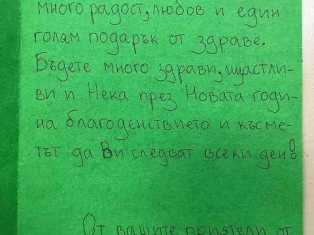 много радост, любов и един
голям подарък от здраве.
Бъдете много здрави, щастли-
ви и Нека през Новата годи-
на благоденствието и късме-
тът да Ви следват всеки ден!
От вашите приятели от